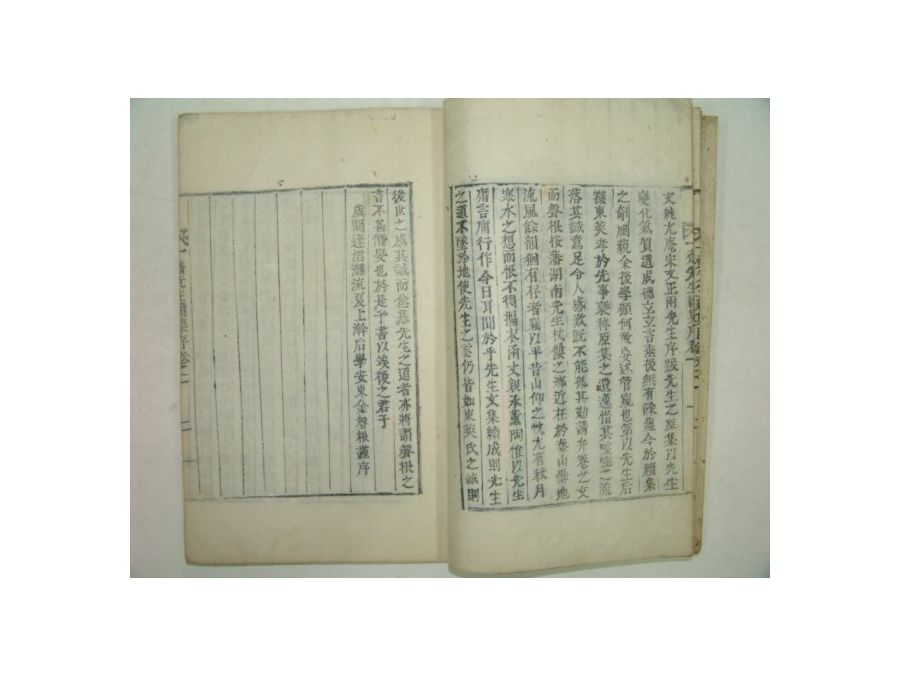 文純尤庵宋文正兩先生序跋先生之原集以先生
變化氣質道成德立立言垂後無有餘蘊今於續集
之剞厥後學顧何敢容述管窺也第以先生后
孫東奭孝於先事裒稡原集之遺逸借其咳唾之流
落其誠意足令人感歎旣不能孤其勤請弁卷之文
而聲根按藩湖南先生杖屨之鄕近在於泰山
流風餘韻猶有存者竊以平昔山仰之忱尤有秋月
寒水之想而恨不得摳衣南丈親承薰陶惟以先生
庸言庸行作今日耳聞於乎先生文集續成則先生
之道不墜於地使先生之雲仍皆如東奭氏之誠則
後世之感其誠而愈慕先生之道者亦將謂聲根之
言不甚僭妄也於是乎書以竢後之君子
歲閼逢涒灘流夏上澣后學安東金聲根謹序